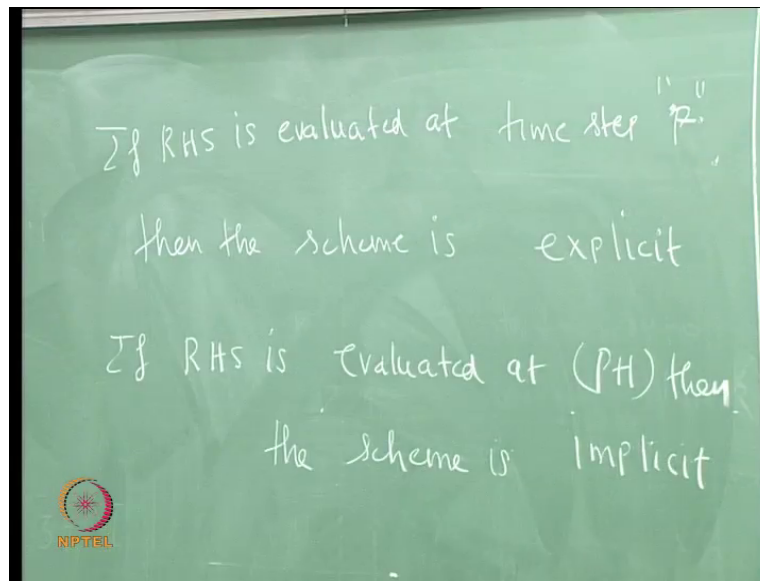 If RHS is evaluated at time step "p"
then the scheme is explicit
If RHS is evaluated at (p+1) then
the scheme is implicit
NPTEL